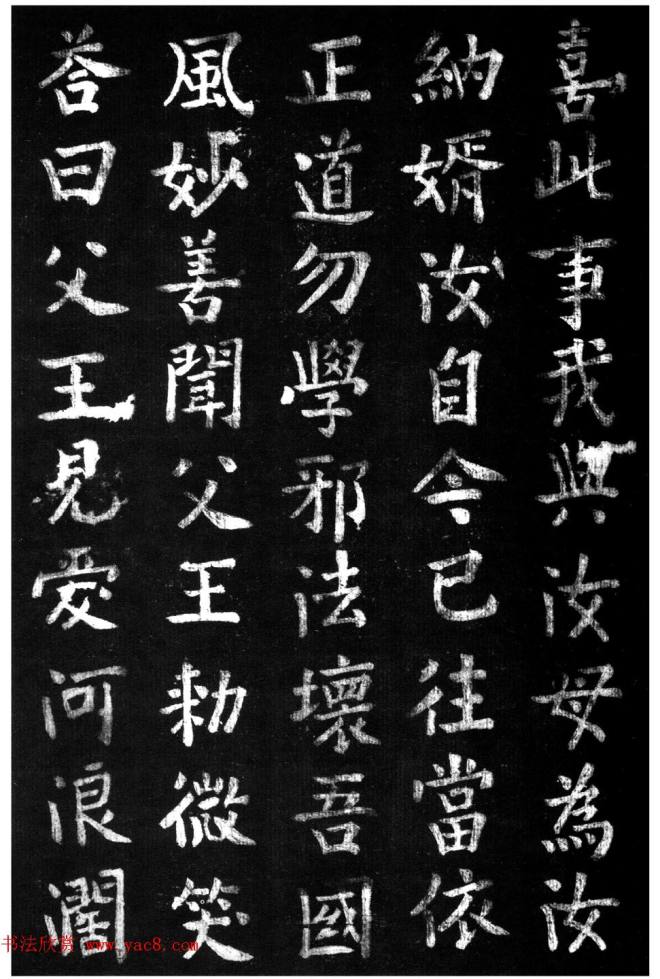 喜此事我與汝母為汝
納婿汝自今已往當依
正道勿學邪法壞吾國
風妙善聞父王勑微笑
荅曰父王見愛河浪濶
书法欣赏 www.yac8.com